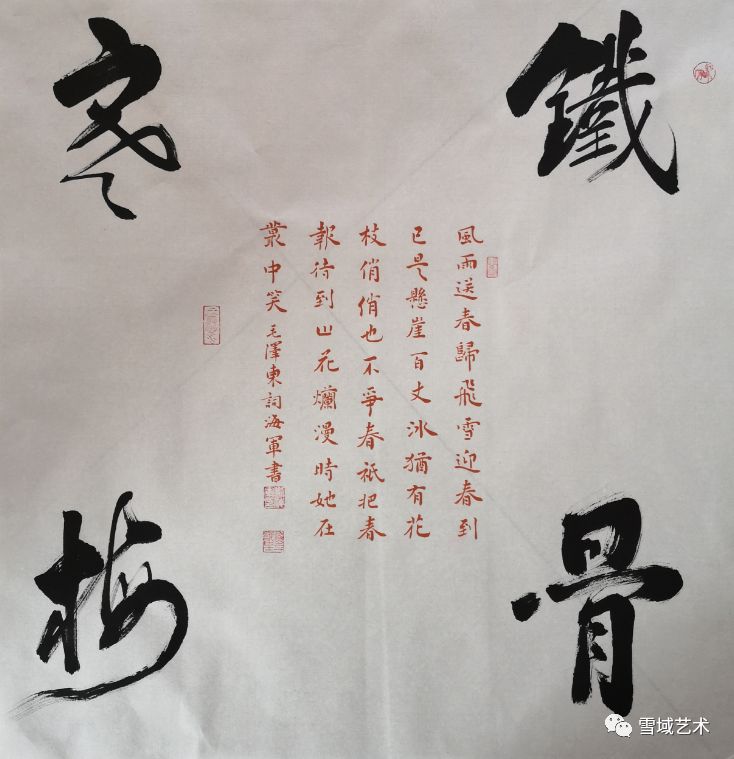 鐵骨
寒梅
風雨送春歸飛雪迎春到
已是懸崖百丈冰猶有花
枝俏俏也不爭春祇把春
報待到山花爛漫時她在
叢中笑 毛澤東詞海軍書
雪域艺术